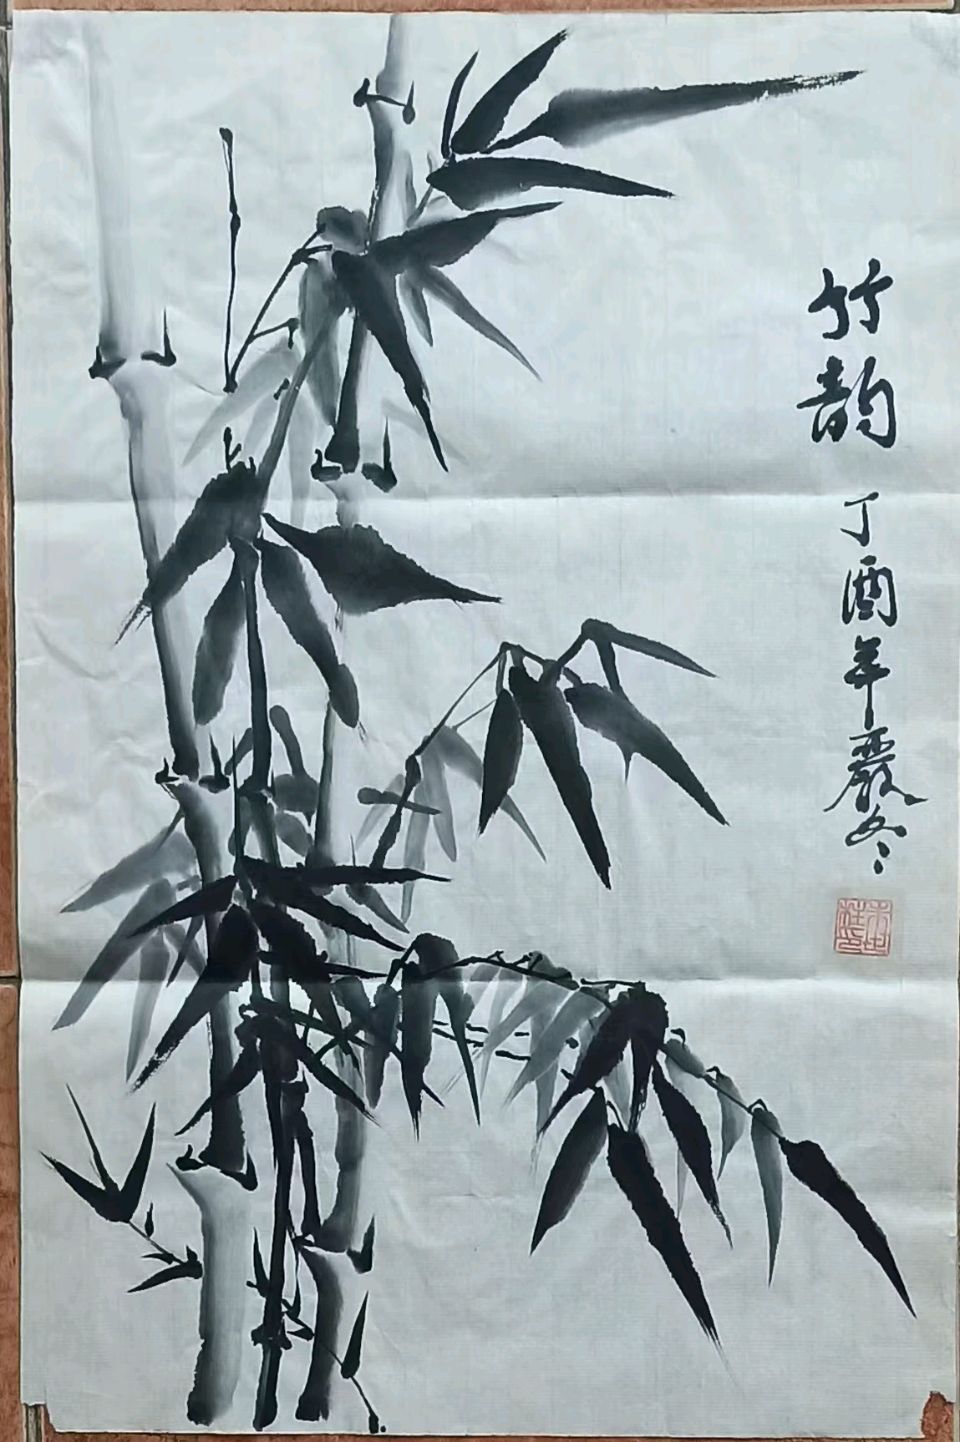 竹韵
丁酉年嚴冬